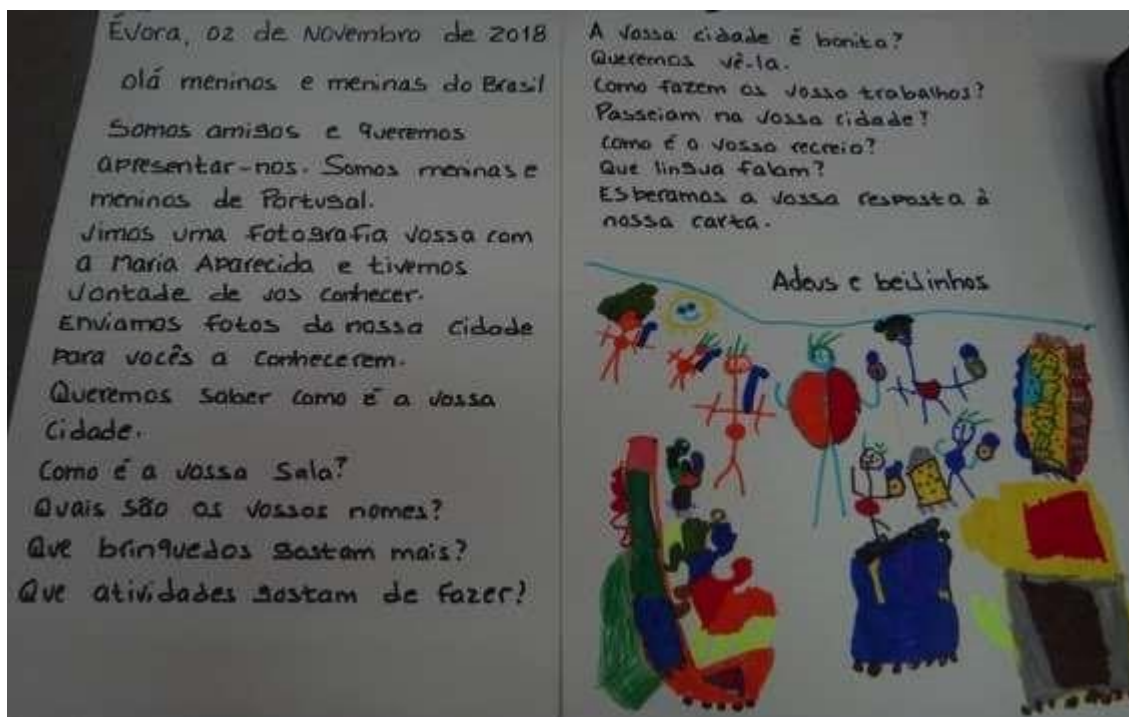 Évora, 02 de Novembro de 2018
olá meninos e meninas do Brasil
Somos amigos e queremos
apresentar-nos. Somos meninas e
meninos de Portugal.
Vimos uma fotografia vossa com
a Maria Aparecida e tivemos
vontade de vos conhecer.
Enviamos fotos da nossa cidade
para vocês a conhecerem.
Queremos saber como é a vossa
cidade.
Como é a vossa sala?
Quais são os vossos nomes?
Que brinquedos gostam mais?
Que atividades gostam de fazer?
A vossa cidade é bonita?
Queremos vê-la.
Como fazem os vosso trabalhos?
Passeiam na vossa cidade?
Como é o vosso recreio?
Que lingua falam?
Esberamos a vossa resposta à
nossa carta.
Adeus e beijinhos